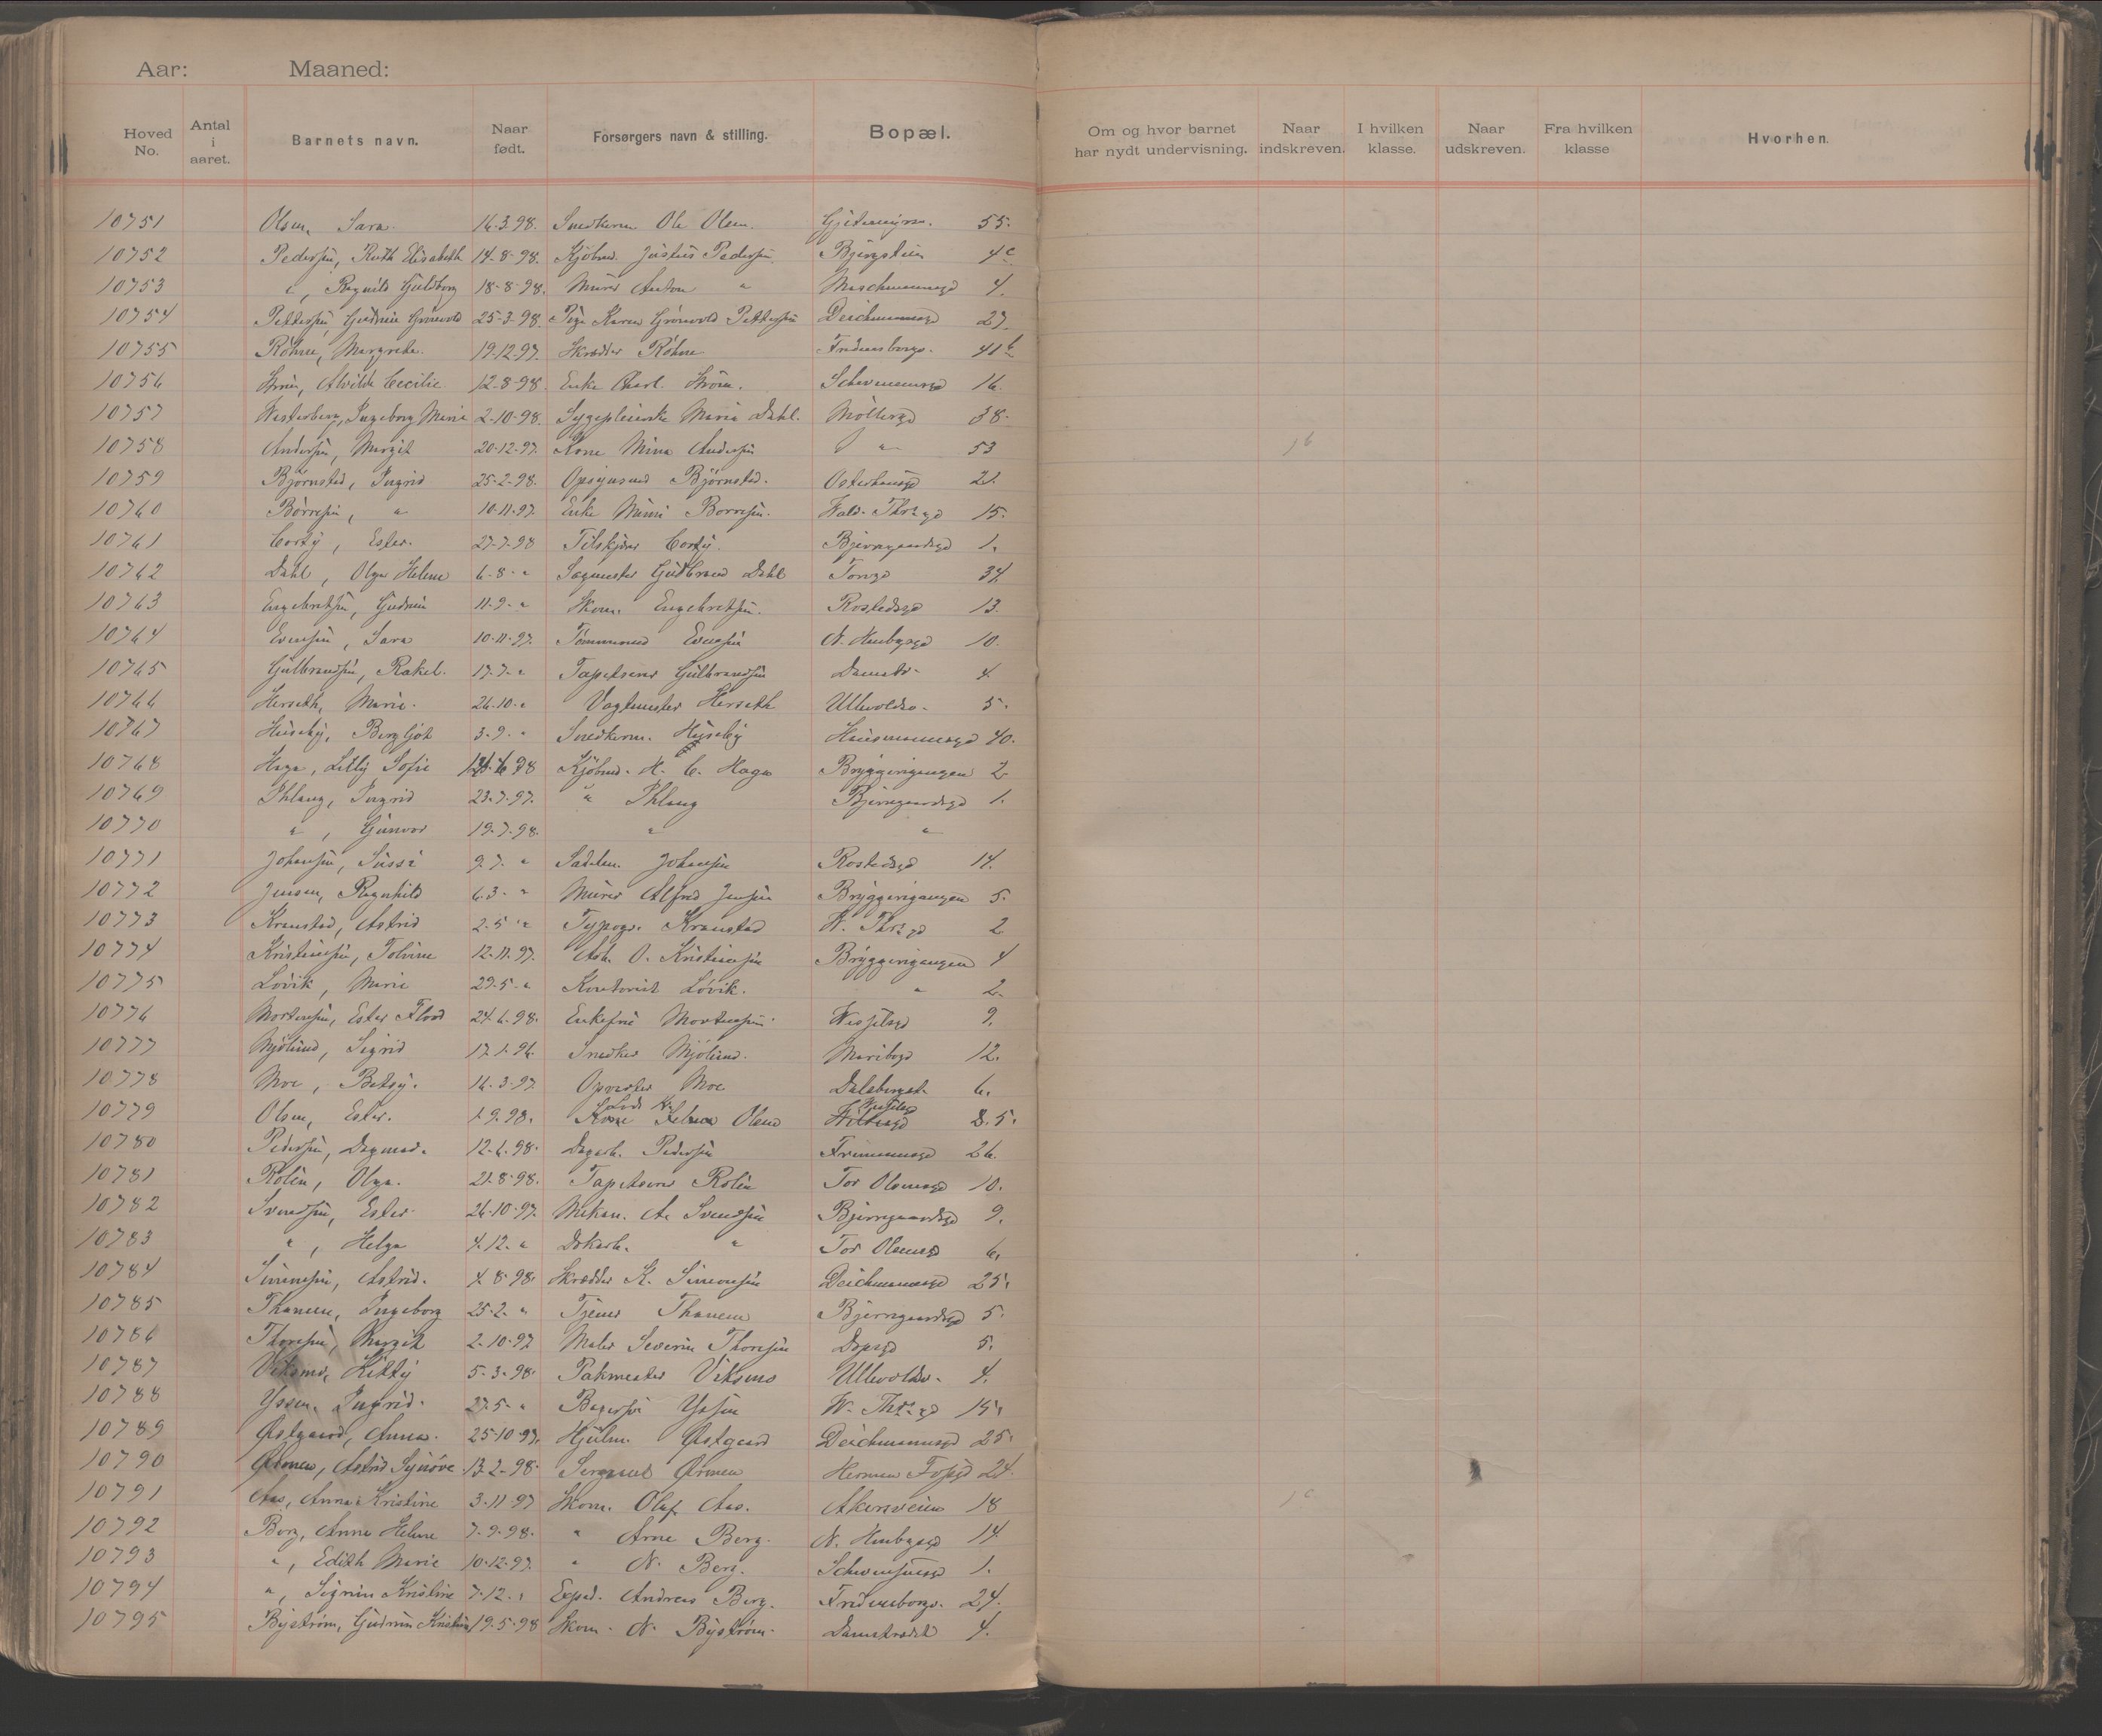 Aar: Maaned:
Hoved No. Antal i aaret. Barnets navn. Naar født. Forsørgers navn & stilling. Bopæl. Om og hvor barnet har nydt undervisning. Naar indskreven. I hvilken klasse. Naar udskreven. Fra hvilken klasse Hvorhen.
10751 Olsen, Sara. 16.3.98. Snedkerm. Ole Olsen. 55.
10752 Pedersen, Ruth Elisabeth 14-8-98. Kjøbmd. Justus Pedersen. Bjergstien 4c
10753 ", Ragnild Guldborg 18-8-98. Murer Anton " 4.
10754 Pettersen, Gudrun Grönvold 25-3-98. Pige Karen Grönvold Pettersen Deichmannsgd 27
10755 Röhne, Margrete. 19.12.97. Skrædder Röhne Fredensborgv. 41b
10756 Ström, Alvilde Cecilie 12-8-98. Enke Charl. Ström. Schwensensgd 16.
10757 Westerberg, Ingeborg Marie 2-10-98. Sygepleierske Maria Dahl. Möllergd 38.
10758 Andersen, Margit 20-12-97. Kone Mina Andersen " 53 1b
10759 Björnstad, Ingrid 25-2-98. Opsynsmd Björnstad. Osterhausgd 21.
10760 Börresen, " 10-11-97. Enke Mimi Börresen. Wald. Thr: gd 15.
10761 Corty, Ester. 27-7-98 Tilskjærer Corty. Bjerregaardsgd 1.
10762 Dahl, Olga Helene 6-8- " Sagmester Gudbrand Dahl Torvgd 34.
10763 Engebretsen, Gudrun 11-9- " Skom. Engebretsen. Rostedsgd 13.
10764 Evensen, Sara 10-11-97. Tömmermd Evensen N. Hmbygsgd 10.
10765 Gulbrandsen, Rakel. 17-7- " Tapetserer Gulbrandsen Damstr. 4.
10766 Herseth, Marie. 26-10- " Vagtmester Herseth Ullevoldsv. 5.
10767 Huseby, Bergljot 3-9- " Snedkerm. Huseby Hausmannsgd 40.
10768 Haga, Lilly Sofie 6 98 Kjöbmd. H. C. Haga Bryggerigangen 2
10769 Ihlang, Ingrid 23-7-97. " Ihlang Bjerregaardsgd 1.
10770 ", Gunvor 19-7-98. " "
10771 Johansen, Sussi 9-7- " Sadelm. Johansen Rostedsgd 14.
10772 Jensen, Ragnhild 6-3- " Murer Alfred Jensen Bryggerigangen 5.
10773 Kranstad, Astrid 2-5 " Typogr. Kranstad W. Thr: gd 2
10774 Kristensen, Tolvine 12-11-97. Arb. O. Kristensen Bryggerigangen 4
10775 Lövik, Marie 29-5- " Kontorist Lövik. " 2.
10776 Mortensen, Ester Flood 24-6-98. Enkefru Mortensen. Wesselsgd 9.
10777 Mjölund, Sigrid 17-1-96. Snedker Mjölund. Maribogd 12.
10778 Moe, Betsy. 16-3-97. Opvarter Moe Dalsbergst. 6.
10779 Olsen, Ester. 1-9-98. Olsen 5.
10780 Pedersen, Dagmar. 12-6-98. Dagarb. Pedersen Frimannsgd 26.
10781 Rolin, Olga. 21-8-98. Tapetserer Rolin Tor Olsensgd 10.
10782 Svendsen, Ester. 26-10-97. Mekan. A. Svendsen Bjerregaardsgd 9.
10783 ", Helga 4-12- " Dskarb. " Tor Olsensgd 6.
10784 Simensen, Astrid. 4-8-98. Skrædder K. Simensen Deichmannsgd 25.
10785 Thanem, Ingeborg 25-2- " Tjener Thanem Bjerregaardsgd 5.
10786 Thoresen, Margit 2-10-97 Maler Severin Thoresen Dopsgd 5.
10787 Viksmo, Kitty 5-3-98. Pakmester Viksmo Ullevoldsv. 4.
10788 Yssen, Ingrid. 27-5- " Bagersv. Yssen W. Thr: gd 15.
10789 Østgaard, Anna. 25-10-97. Hjulm. Østgaard Deichmannsgd 25.
10790 Ørmen, Astrid Synöve 13-2-98. Sergeant Ørmen Herman Fossgd 24.
10791 Aas, Anna Kristine 3-11-97 Skom. Olaf Aas. Akersveien 18 1c
10792 Berg, Anna Helene 7-9-98. " Arne Berg. N. Hmbygsgd 14.
10793 ", Edith Marie 10-12-97. " N. Berg. Schwensensgd 1.
10794 ", Sigrun Kristine 7-12- " Exped. Andreas Berg. Fredensborgv. 24.
10795 Byström, Gudrun Kristine 19-5-98 Skom. N. Byström. Damstrædet 4.